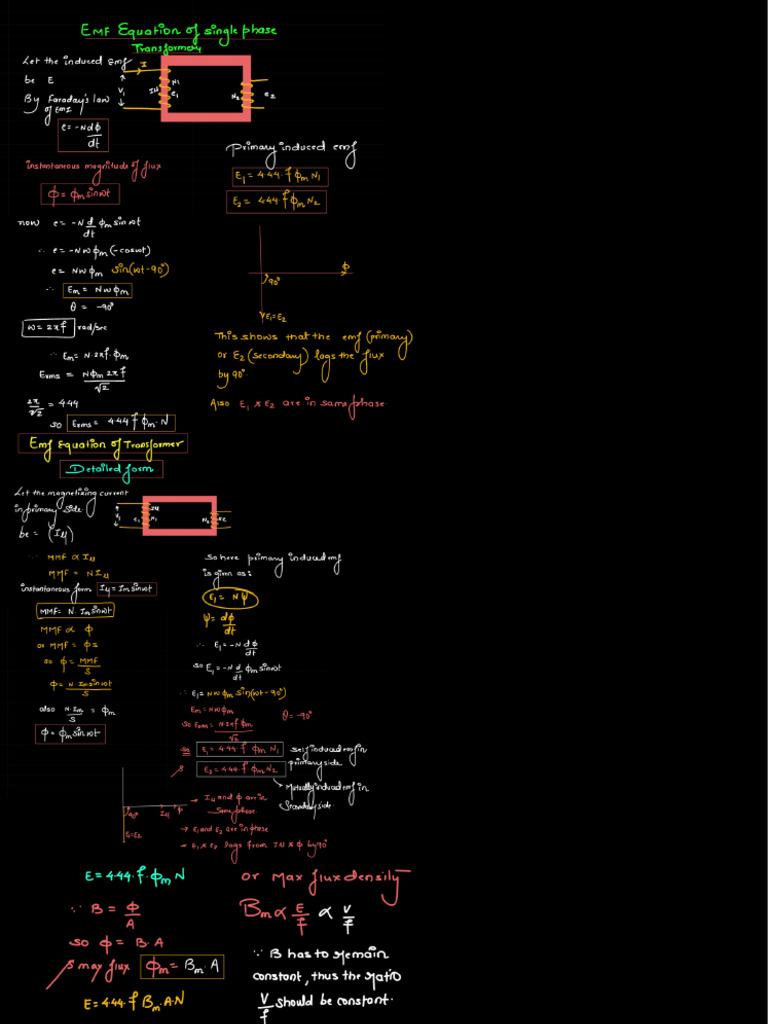 EMF Equation of single phase
Transformer
Let the induced Emf
be E
By Faraday's law
of EMI
e = -N dϕ/dt
I
V₁
N₁
e₁
N₂
e₂
instantaneous magnitude of flux
ϕ = ϕm sinωt
now e = -N d/dt ϕm sinωt
∴ e = -Nωϕm (-cosωt)
e = Nωϕm sin(ωt-90°)
∴ Em = Nωϕm
θ = -90°
ω = 2πf rad/sec
∴ Em = N·2πf·ϕm
Erms = Nϕm 2πf/√2
2π/√2 = 4.44
so Erms = 4.44 f ϕm·N
primary induced emf
E₁ = 4.44·f ϕm N₁
E₂ = 4.44 f ϕm N₂
ϕ
90°
E₁=E₂
This shows that the emf (primary)
or E₂ (secondary) lags the flux
by 90°.
Also E₁ & E₂ are in same phase
Emf Equation of Transformer
Detailed form
Let the magnetizing current
in primary side
be = (Iμ)
Iμ
V₁
e₁
N₁
N₂
∵ MMF ∝ Iμ
MMF = N Iμ
instantaneous form Iμ = Im sinωt
MMF = N·Im sinωt
MMF ∝ ϕ
or MMF = ϕS
so ϕ = MMF/S
ϕ = N Im sinωt/S
also N·Im/S = ϕm
ϕ = ϕm sinωt
so here primary induced emf
is given as:
E₁ = NΨ
Ψ = dϕ/dt
∴ E₁ = -N dϕ/dt
so E₁ = -N d/dt ϕm sinωt
∴ E₁ = Nωϕm sin(ωt-90°)
Em = Nωϕm
θ = -90°
so Erms = N·2πf ϕm/√2
so E₁ = 4.44 f ϕm N₁
self induced emf in
primary side
& E₂ = 4.44·f ϕm N₂
Mutually induced emf in
Secondary side
90°
Iμ
ϕ
E₁=E₂
→ Iμ and ϕ are in
same phase
→ E₁ and E₂ are in phase
→ E₁ & e₂ lags from Iμ & ϕ by 90°
E = 4.44·f·ϕm N
∵ B = ϕ/A
so ϕ = B·A
max flux ϕm = Bm·A
E = 4.44·f Bm·A·N
or Max flux density
Bm ∝ E/f ∝ V/f
∵ B has to remain
constant, thus the ratio
V/f should be constant.